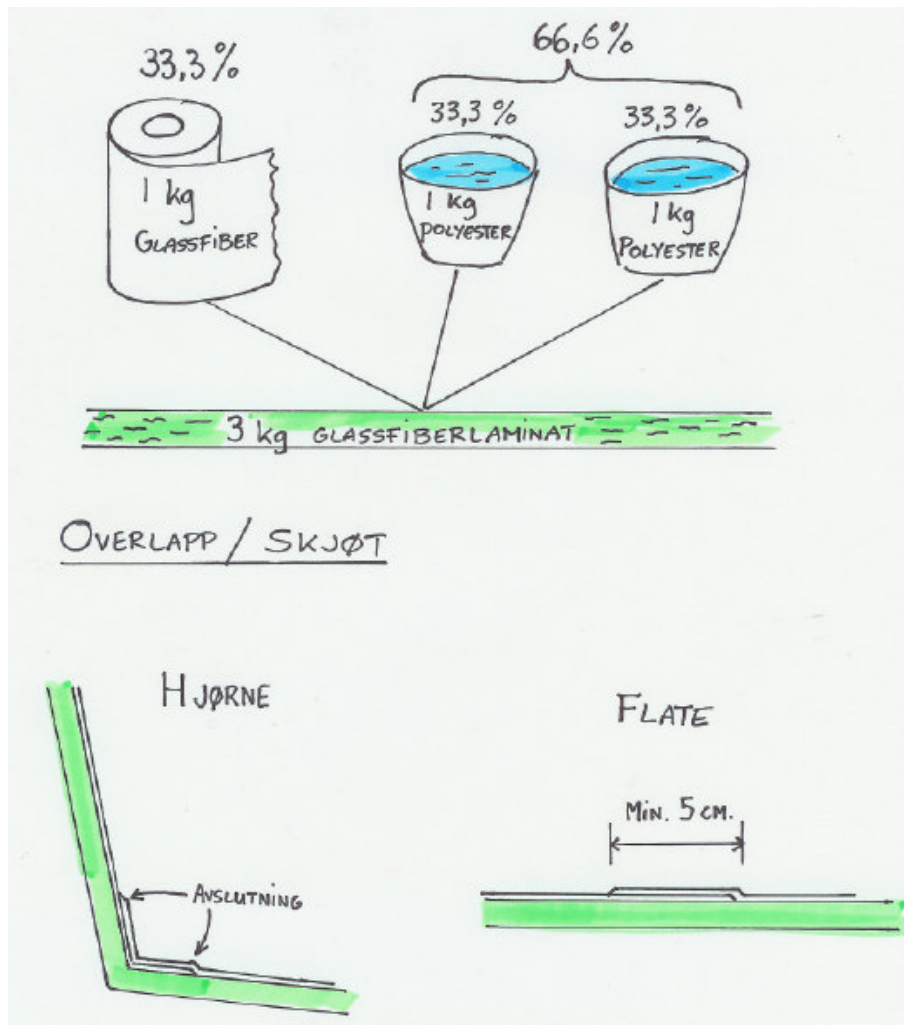 66,6%
33,3%
33,3%
33,3%
1 kg
GLASSFIBER
1 kg
POLYESTER
1 kg
POLYESTER
3 kg GLASSFIBERLAMINAT
OVERLAPP / SKJØT
HJØRNE
FLATE
MIN. 5 CM.
AVSLUTNING